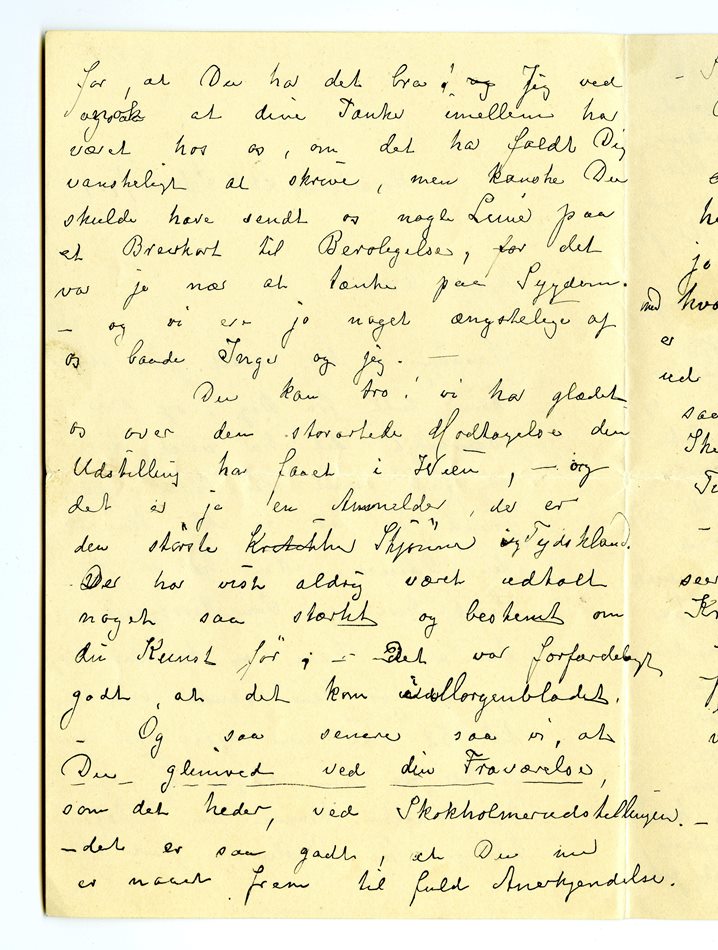 for, at Du har det bra! og Jeg ved
ogsaa at dine Tanker imellem har
været hos os, om det har faldt Dig
vanskeligt at skrive, men kanske Du
skulde have sendt os nogle Linie paa
et Brevkort til Beroligelse, for det
var jo nær at tænke paa Sygdom.
– og vi ere jo noget ængstelige af
os baade Inger og jeg. –
Du kan tro! vi har glædet
os over den storartede Modtagelse din
Udstilling har faaet i Wien, – og
det er jo en Anmelder, der er
den største Kritikker Skjønner i Tydskland.
Der har vist aldrig været udtalt
noget saa stærkt og bestemt om
din Kunst før; – Det var forfærdeligt
godt, at det kom i Morgenbladet.
– Og saa senere saa vi, at
Du glimred ved din Fraværelse,
som det heder, ved Stokholmerudstillingen. –
– det er saa godt, at Du nu
er naaet frem til fuld Anerkjendelse.
–
jo
med hvo
er
ud
saa
Ti
–
seer
Kr